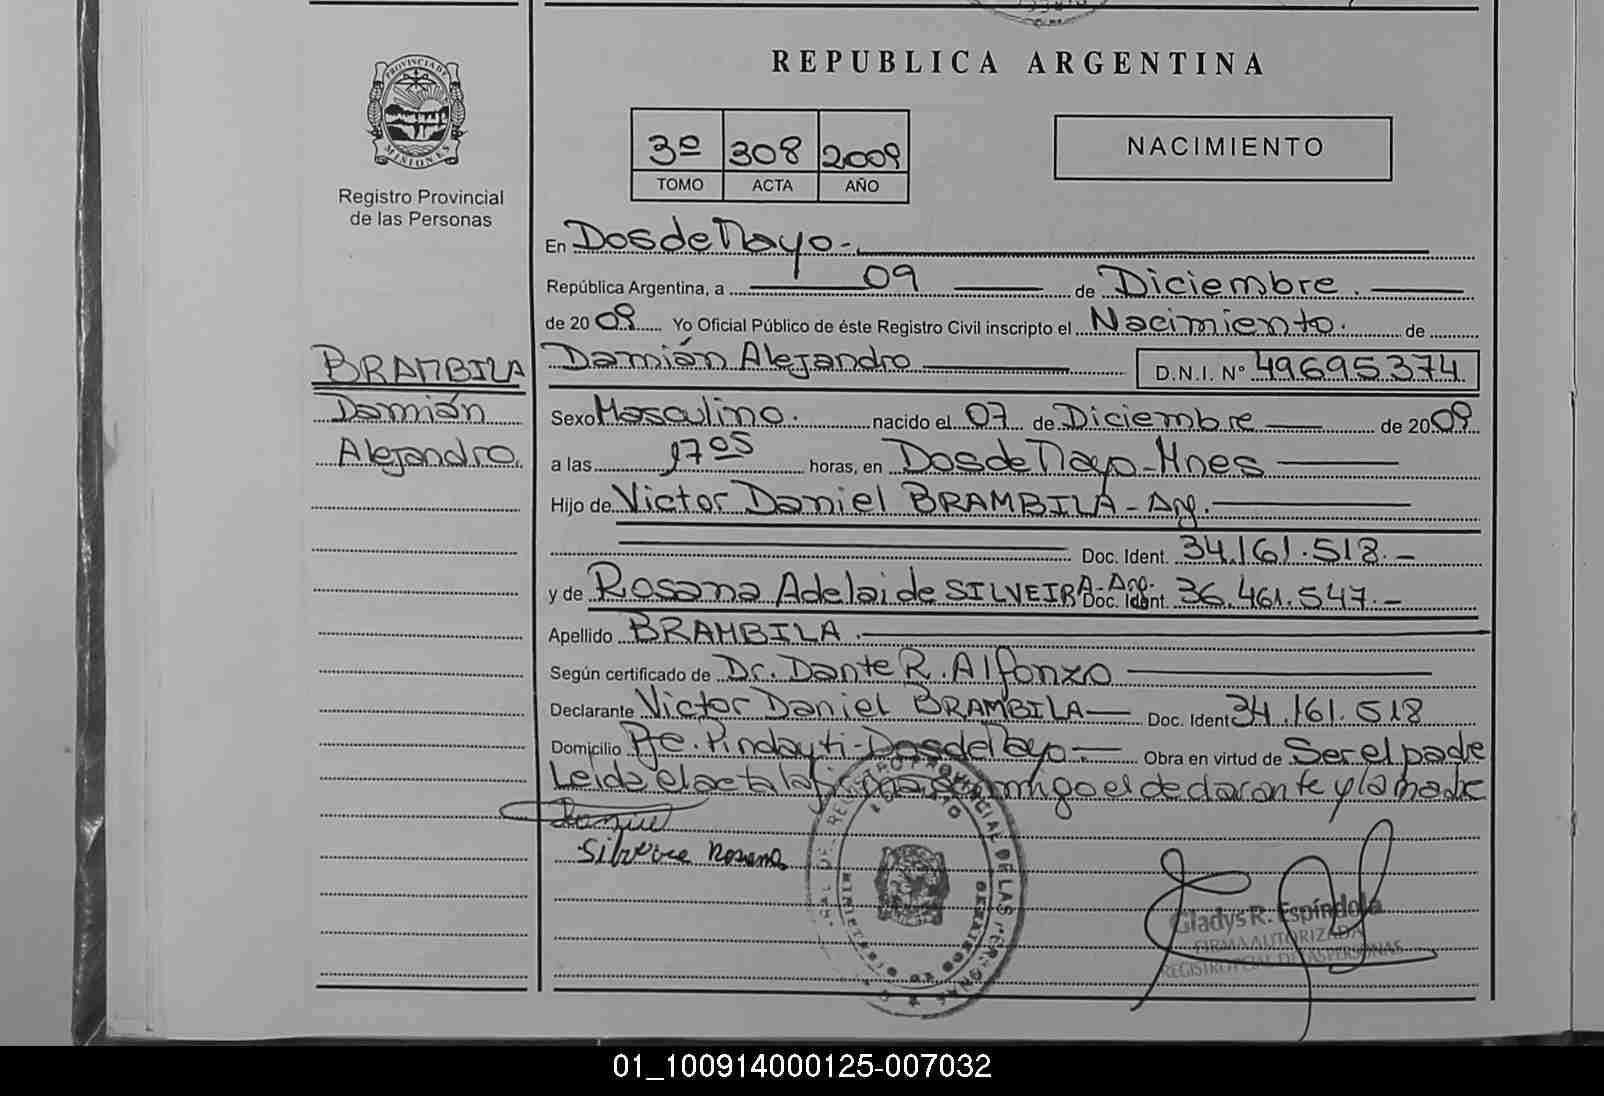 REPUBLICA ARGENTINA
PROVINCIA DE
MISIONES
Registro Provincial
de las Personas
3º 308 2009
TOMO ACTA AÑO
NACIMIENTO
En Dos de Mayo.-
República Argentina, a 09 de Diciembre.
de 2009 Yo Oficial Público de éste Registro Civil inscripto el Nacimiento. de
BRAMBILA
Damián
Alejandro.
Damián Alejandro D.N.I. Nº 49695374
Sexo Masculino. nacido el 07 de Diciembre de 2009
a las 17 05 horas, en Dos de Mayo-Mnes
Hijo de Victor Daniel BRAMBILA-Arg.
Doc. Ident. 34.161.518.-
y de Rosana Adelaide SILVEIRA-Arg. Doc. Ident. 36.461.547.-
Apellido BRAMBILA.
Según certificado de Dr. Dante R. Alfonzo
Declarante Victor Daniel BRAMBILA Doc. Ident 34.161.518
Domicilio Pje. Pindayti-Dos de Mayo.- Obra en virtud de Ser el padre
Leida el acta la firman conmigo el declarante y la madre
Silveira Rosana
REGISTRO PROVINCIAL DE LAS PERSONAS
MINISTERIO DE GOBIERNO
Gladys R. Espíndola
FIRMA AUTORIZADA
REGISTRO PCIAL DE LAS PERSONAS
01_100914000125-007032